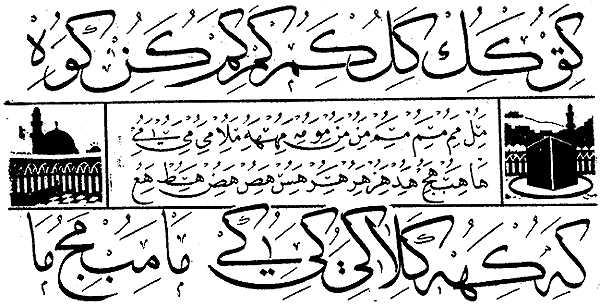 كق كك كل كم كم كم كن كو كه
مل مم مم مم من من مو مه مهه ملا مي مي
ها هب هج هد هر هر هس هص هض هط هع
كه كهه كلا كي كي كي ما مب مج ما